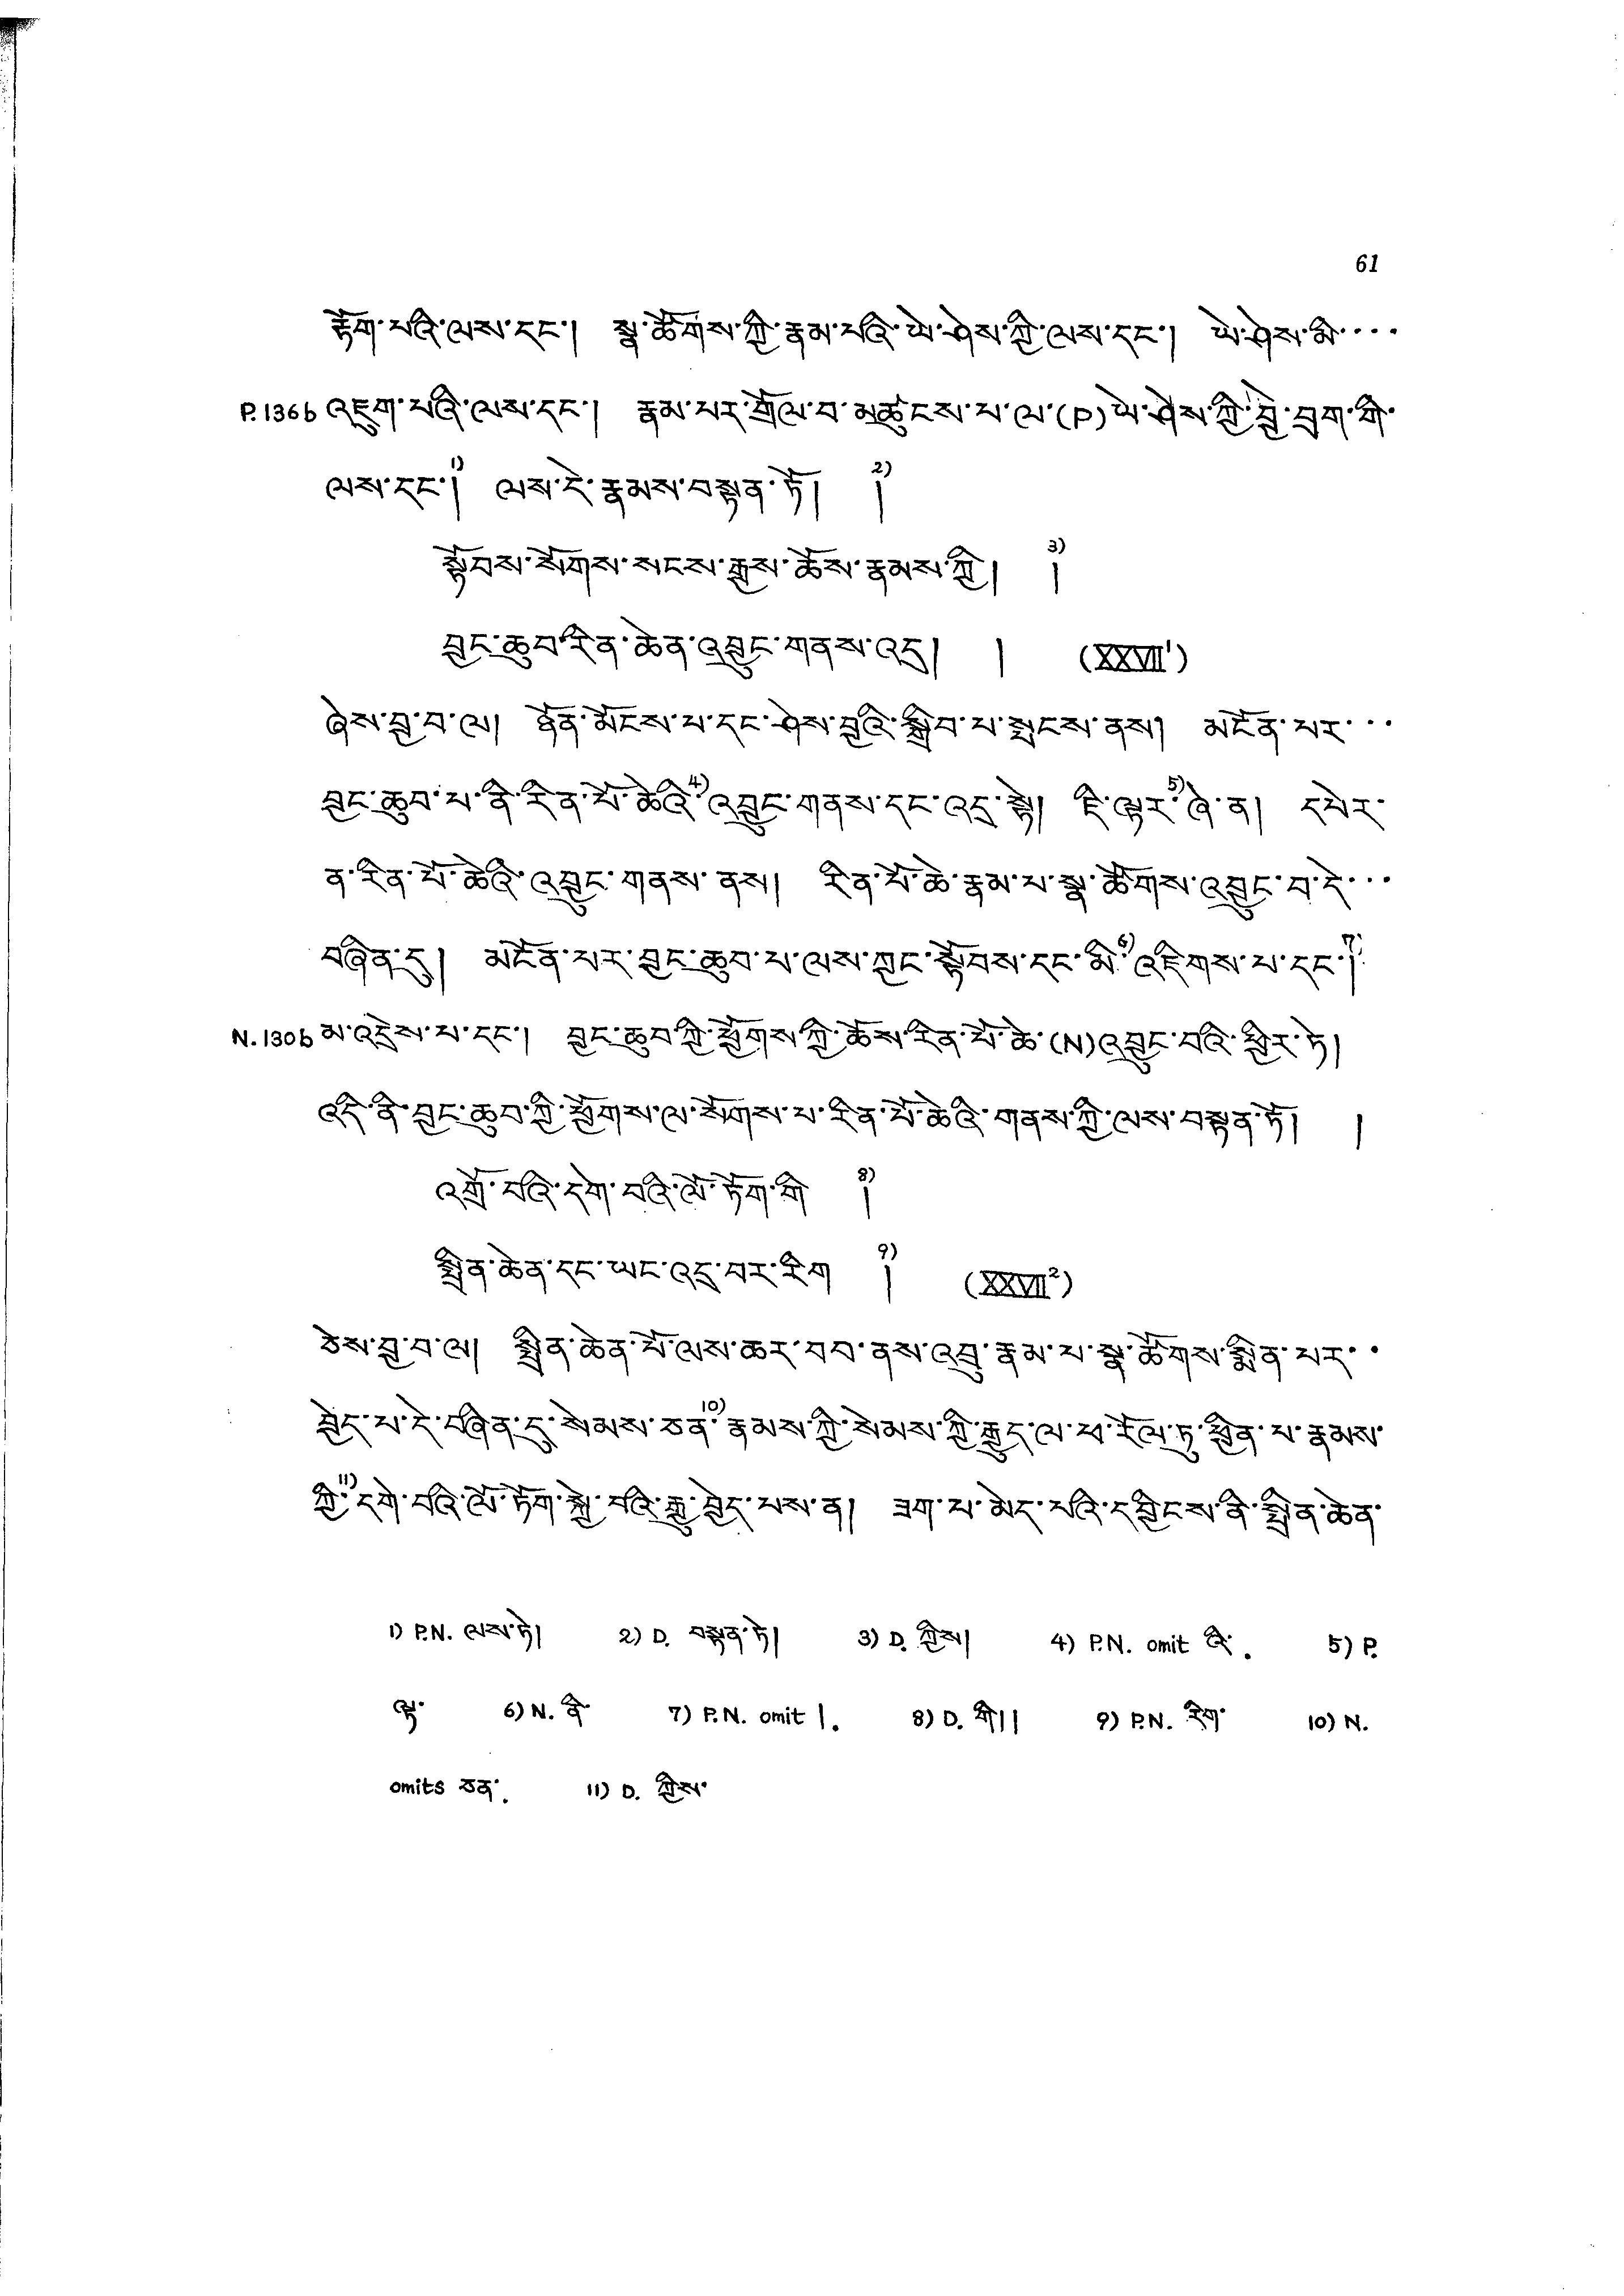 61
རྟོག་པའི་ལས་དང་།  སྣ་ཚོགས་ཀྱི་རྣམ་པའི་ཡེ་ཤེས་ཀྱི་ལས་དང་།  ཡེ་ཤེས་མི་····
P.136b འཇུག་པའི་ལས་དང་།  རྣམ་པར་གྲོལ་བ་མཚུངས་པ་ལ་(P)ཡེ་ཤེས་ཀྱི་བྱེ་བྲག་གི་
ལས་དང་།1)  ལས་དེ་རྣམས་བསྟན་ཏོ།  །2)
སྟོབས་སོགས་སངས་རྒྱས་ཆོས་རྣམས་ཀྱི།  །3)
བྱང་ཆུབ་རིན་ཆེན་འབྱུང་གནས་འདྲ།  །  (XXVII¹)
ཞེས་བྱ་བ་ལ།  ཉོན་མོངས་པ་དང་ཤེས་བྱའི་སྒྲིབ་པ་སྤངས་ནས།  མངོན་པར་···
བྱང་ཆུབ་པ་ནི་རིན་པོ་ཆེའི་4)འབྱུང་གནས་དང་འདྲ་སྟེ།  ཇི་ལྟར་5)ཞེ་ན།  དཔེར་
ན་རིན་པོ་ཆེའི་འབྱུང་གནས་ནས།  རིན་པོ་ཆེ་རྣམ་པ་སྣ་ཚོགས་འབྱུང་བ་དེ་···
བཞིན་དུ།  མངོན་པར་བྱང་ཆུབ་པ་ལས་ཀྱང་སྟོབས་དང་མི་6)འཇིགས་པ་དང་།7)
N.130b མ་འདྲེས་པ་དང་།  བྱང་ཆུབ་ཀྱི་ཕྱོགས་ཀྱི་ཆོས་རིན་པོ་ཆེ་(N)འབྱུང་བའི་ཕྱིར་ཏེ།
འདི་ནི་བྱང་ཆུབ་ཀྱི་ཕྱོགས་ལ་སོགས་པ་རིན་པོ་ཆེའི་གནས་ཀྱི་ལས་བསྟན་ཏོ།  །
འགྲོ་བའི་དགེ་བའི་ལོ་ཏོག་གི  །8)
སྤྲིན་ཆེན་དང་ཡང་འདྲ་བར་རིག  །9)  (XXVII²)
ཅེས་བྱ་བ་ལ།  སྤྲིན་ཆེན་པོ་ལས་ཆར་བབ་ནས་འབྲུ་རྣམ་པ་སྣ་ཚོགས་སྨིན་པར་··
བྱེད་པ་དེ་བཞིན་དུ་སེམས་ཅན་10)རྣམས་ཀྱི་སེམས་ཀྱི་རྒྱུད་ལ་ཕ་རོལ་ཏུ་ཕྱིན་པ་རྣམས་
ཀྱི་11)དགེ་བའི་ལོ་ཏོག་སྐྱེ་བའི་རྒྱུ་བྱེད་པས་ན།  ཟག་པ་མེད་པའི་དབྱིངས་ནི་སྤྲིན་ཆེན་
1) P.N. ལས་ཏེ།  2) D. བསྟན་ཏེ།  3) D. ཀྱིས།  4) P.N. omit འི་.  5) P.
ལྟ་  6) N. ནི་  7) P.N. omit །.  8) D. གི།།  9) P.N. རིག་  10) N.
omits ཅན་.  11) D. ཀྱིས་